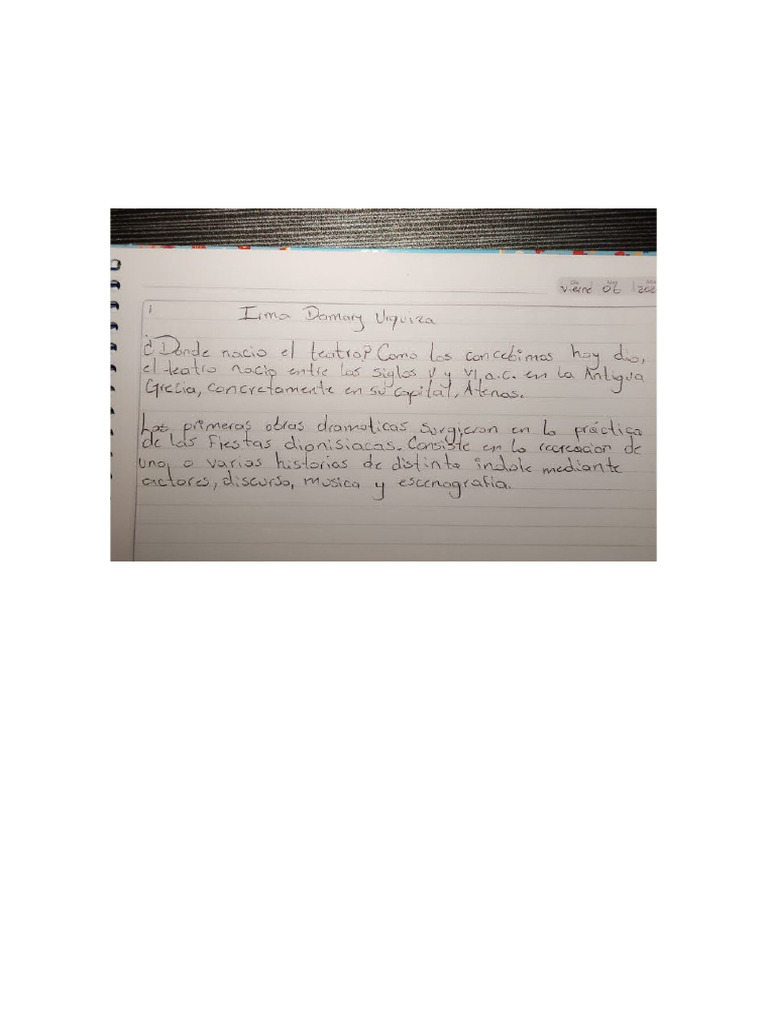 Vierne 06 202
Irma Damary Urquiza
¿Donde nacio el teatro? Como los concebimos hoy dia,
el teatro nacio entre los siglos V y VI, a.c. en la Antigua
Grecia, concretamente en su capital, Atenas.
Las primeras obras dramaticas surgieron en la práctica
de las Fiestas dionisiacas. Consiste en la recreacion de
una o varias historias de distinta indole mediante
actores, discurso, musica y escenografia.